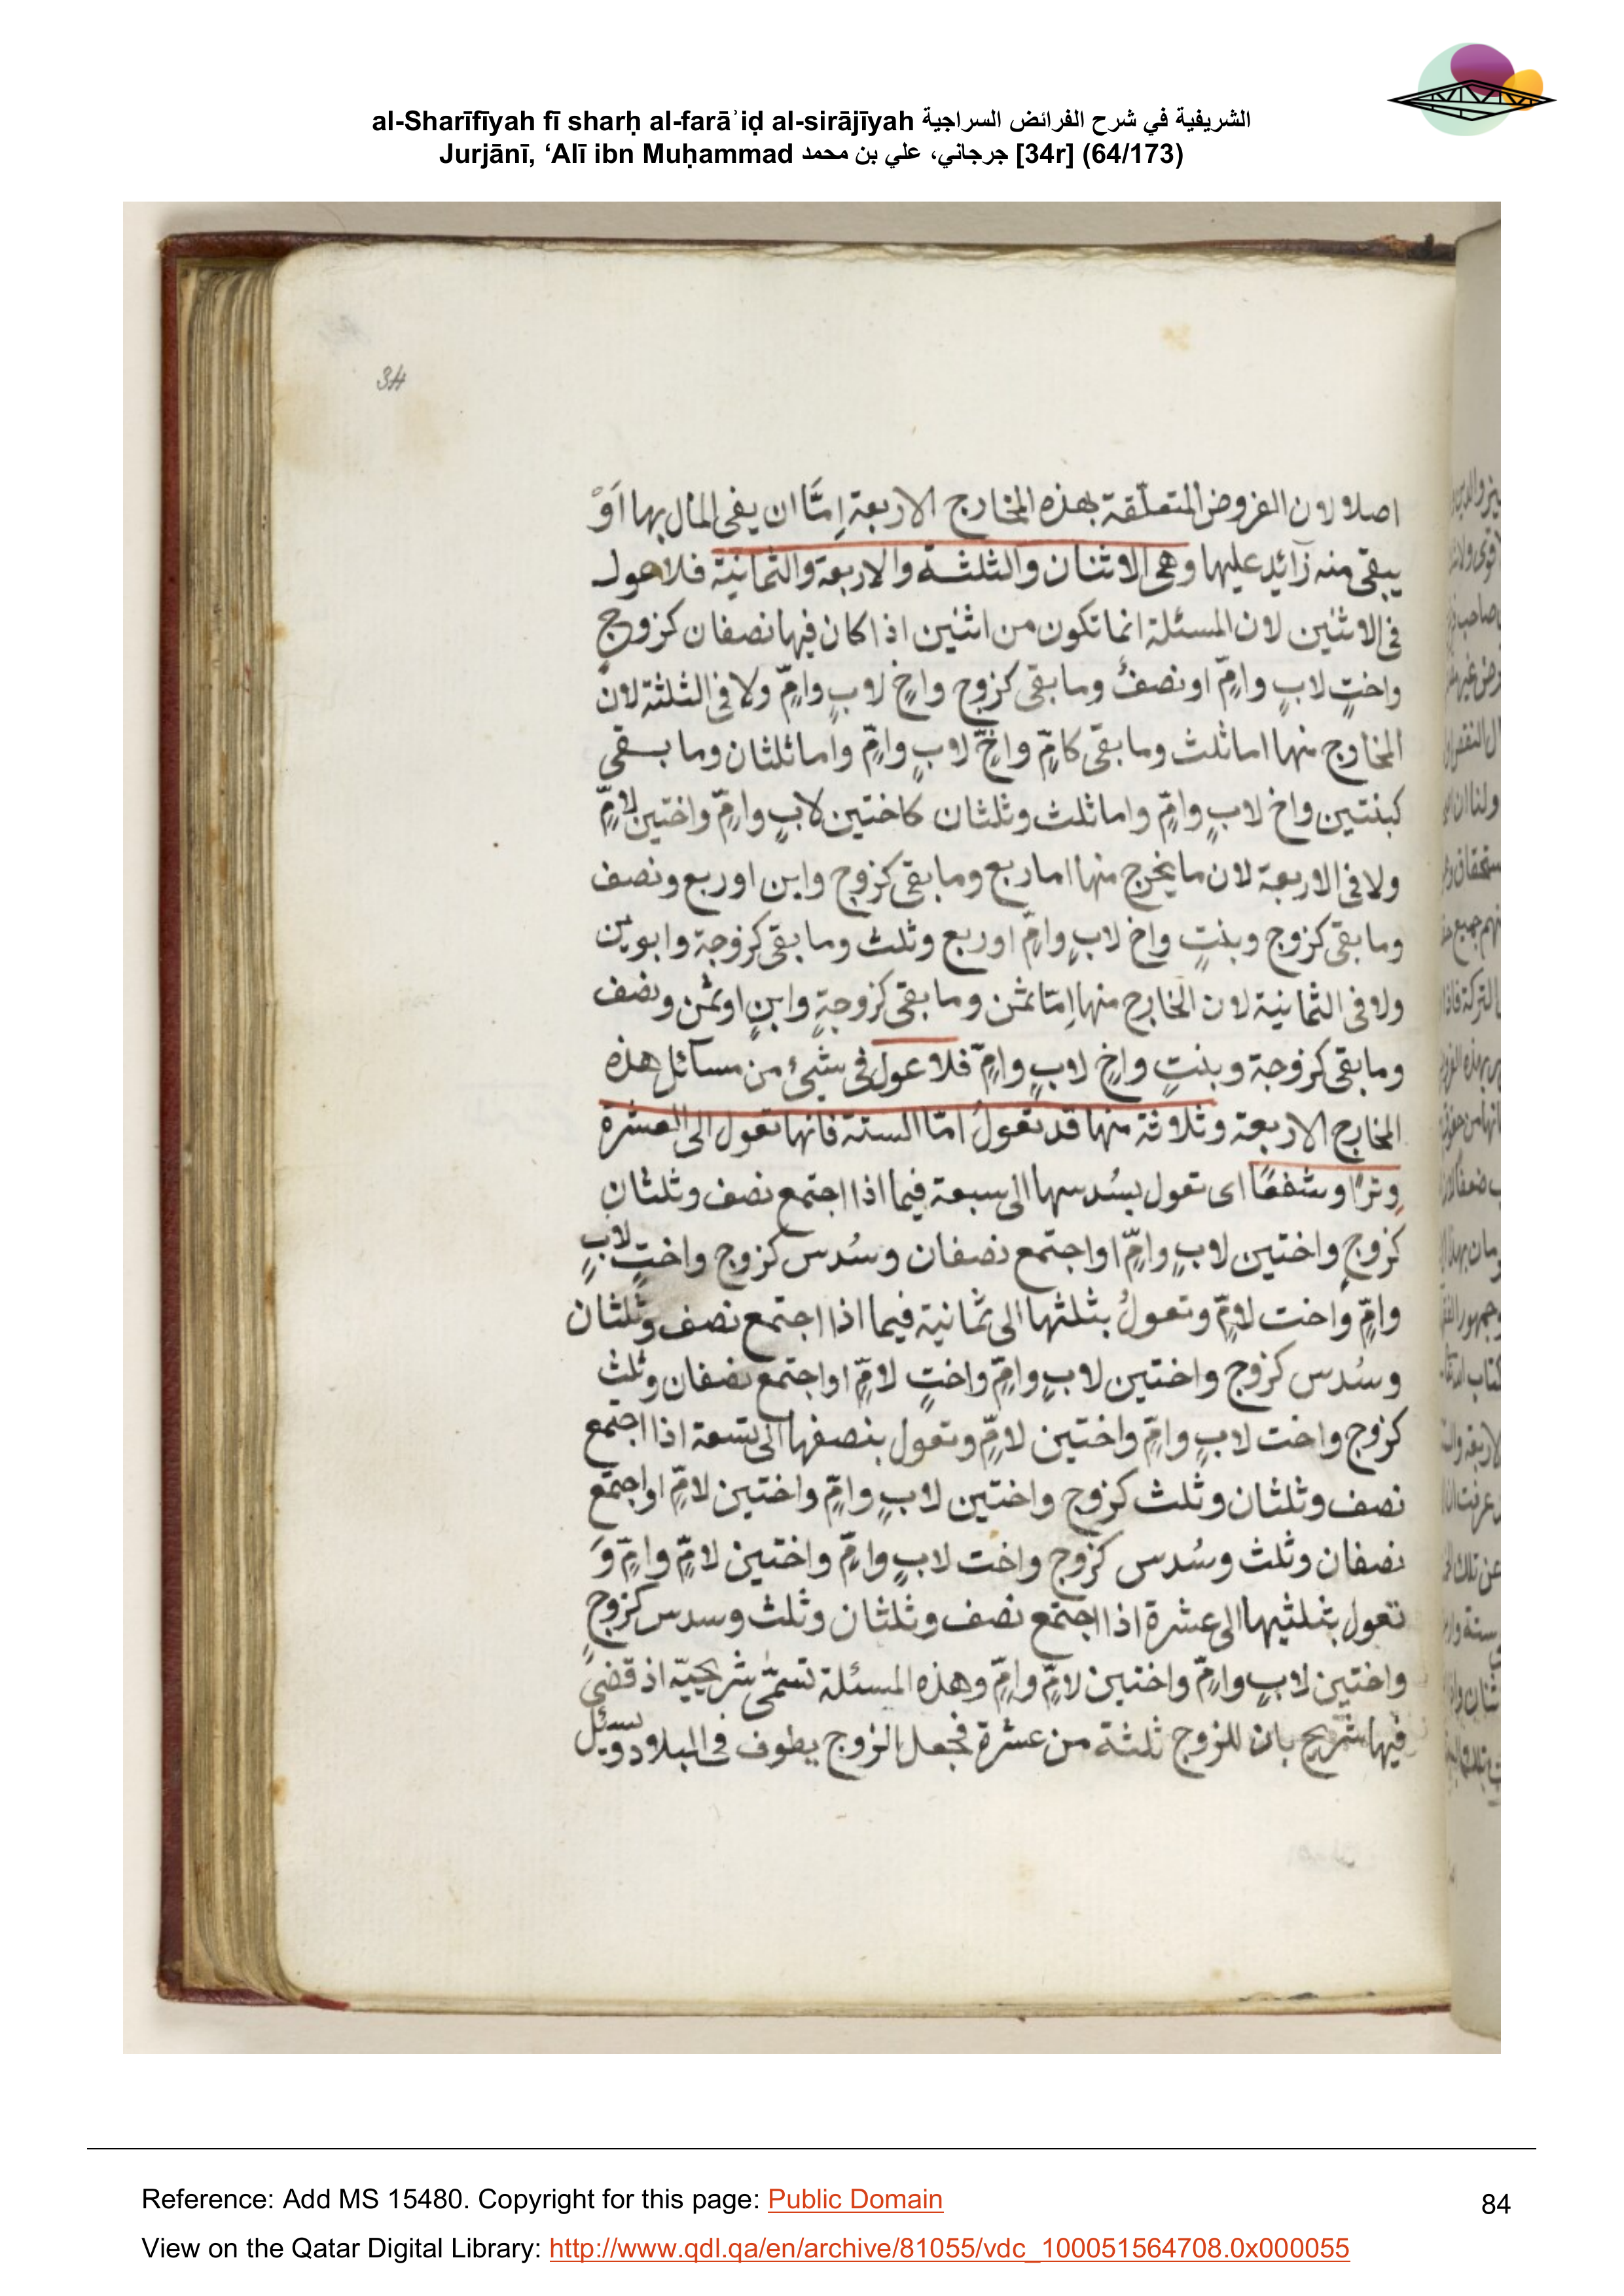 al-Sharīfīyah fī sharḥ al-farāʾiḍ al-sirājīyah الشريفية في شرح الفرائض السراجية
Jurjānī, ‘Alī ibn Muḥammad جرجاني، علي بن محمد [34r] (64/173)
34
اصلا لان الفروض المتعلّقة بهذه المخارج الاربعة اِمّا ان يفى المال بها اَوْ
يبقى منه زآئد عليها وهى الاثنان والثلثة والاربعة والثمانية فلا عول
فى الاثنين لان المسئلة انما تكون من اثنين اذا كان فيها نصفان كزوجٍ
واختٍ لابٍ وامٍّ او نصفٌ وما بقى كزوج واخٍ لابٍ وامٍّ ولا فى الثلثة لان
المخارج منها اما ثلث وما بقى كامٍّ واخٍّ لابٍ وامٍّ واما ثلثان وما بقى
كبنتين واخ لابٍ وامٍّ واما ثلث وثلثان كاختين لابٍ وامٍّ واختين لامٍّ
ولا فى الاربعة لان ما يخرج منها اما ربع وما بقى كزوج وابن او ربع ونصف
وما بقى كزوج وبنتٍ واخ لابٍ وامٍّ او ربع وثلث وما بقى كزوجة وابوين
ولا فى الثمانية لان الخارج منها اِمّا ثمن وما بقى كزوجةٍ وابنٍ او ثمن ونصف
وما بقى كزوجة وبنتٍ واخٍ لابٍ وامٍّ فلا عول فى شىء من مسآئل هذه
المخارج الاربعة وثلاثة منها قد تعولُ امّا الستة فانها تعول الى العشرة
وِترًا وشفعًا اى تعول بسُدسها الى سبعة فيما اذا اجتمع نصف وثلثان
كزوجٍ واختين لابٍ وامٍّ او اجتمع نصفان وسُدس كزوج واختٍ لابٍ
وامٍّ واخت لامٍّ وتعولُ بثلثها الى ثمانية فيما اذا اجتمع نصف وثلثان
وسُدس كزوج واختين لابٍ وامٍّ واختٍ لامٍّ او اجتمع نصفان وثلث
كزوج واخت لابٍ وامٍّ واختين لامٍّ وتعول بنصفها الى تسعة اذا اجتمع
نصف وثلثان وثلث كزوج واختين لابٍ وامٍّ واختين لامٍّ او اجتمع
نصفان وثلث وسُدس كزوج واخت لابٍ وامٍّ واختين لامٍّ وامٍّ وَ
تعول بثلثيها الى عشرة اذا اجتمع نصف وثلثان وثلث وسدس كزوجٍ
واختين لابٍ وامٍّ واختين لامٍّ وامٍّ وهذه المسئلة تسمّى شريحيّة اذ قضى
فيها شريح بان للزوج ثلثة من عشرة فجعل الزوج يطوف فى البلاد ويسئل
Reference: Add MS 15480. Copyright for this page: Public Domain
84
View on the Qatar Digital Library: http://www.qdl.qa/en/archive/81055/vdc_100051564708.0x000055